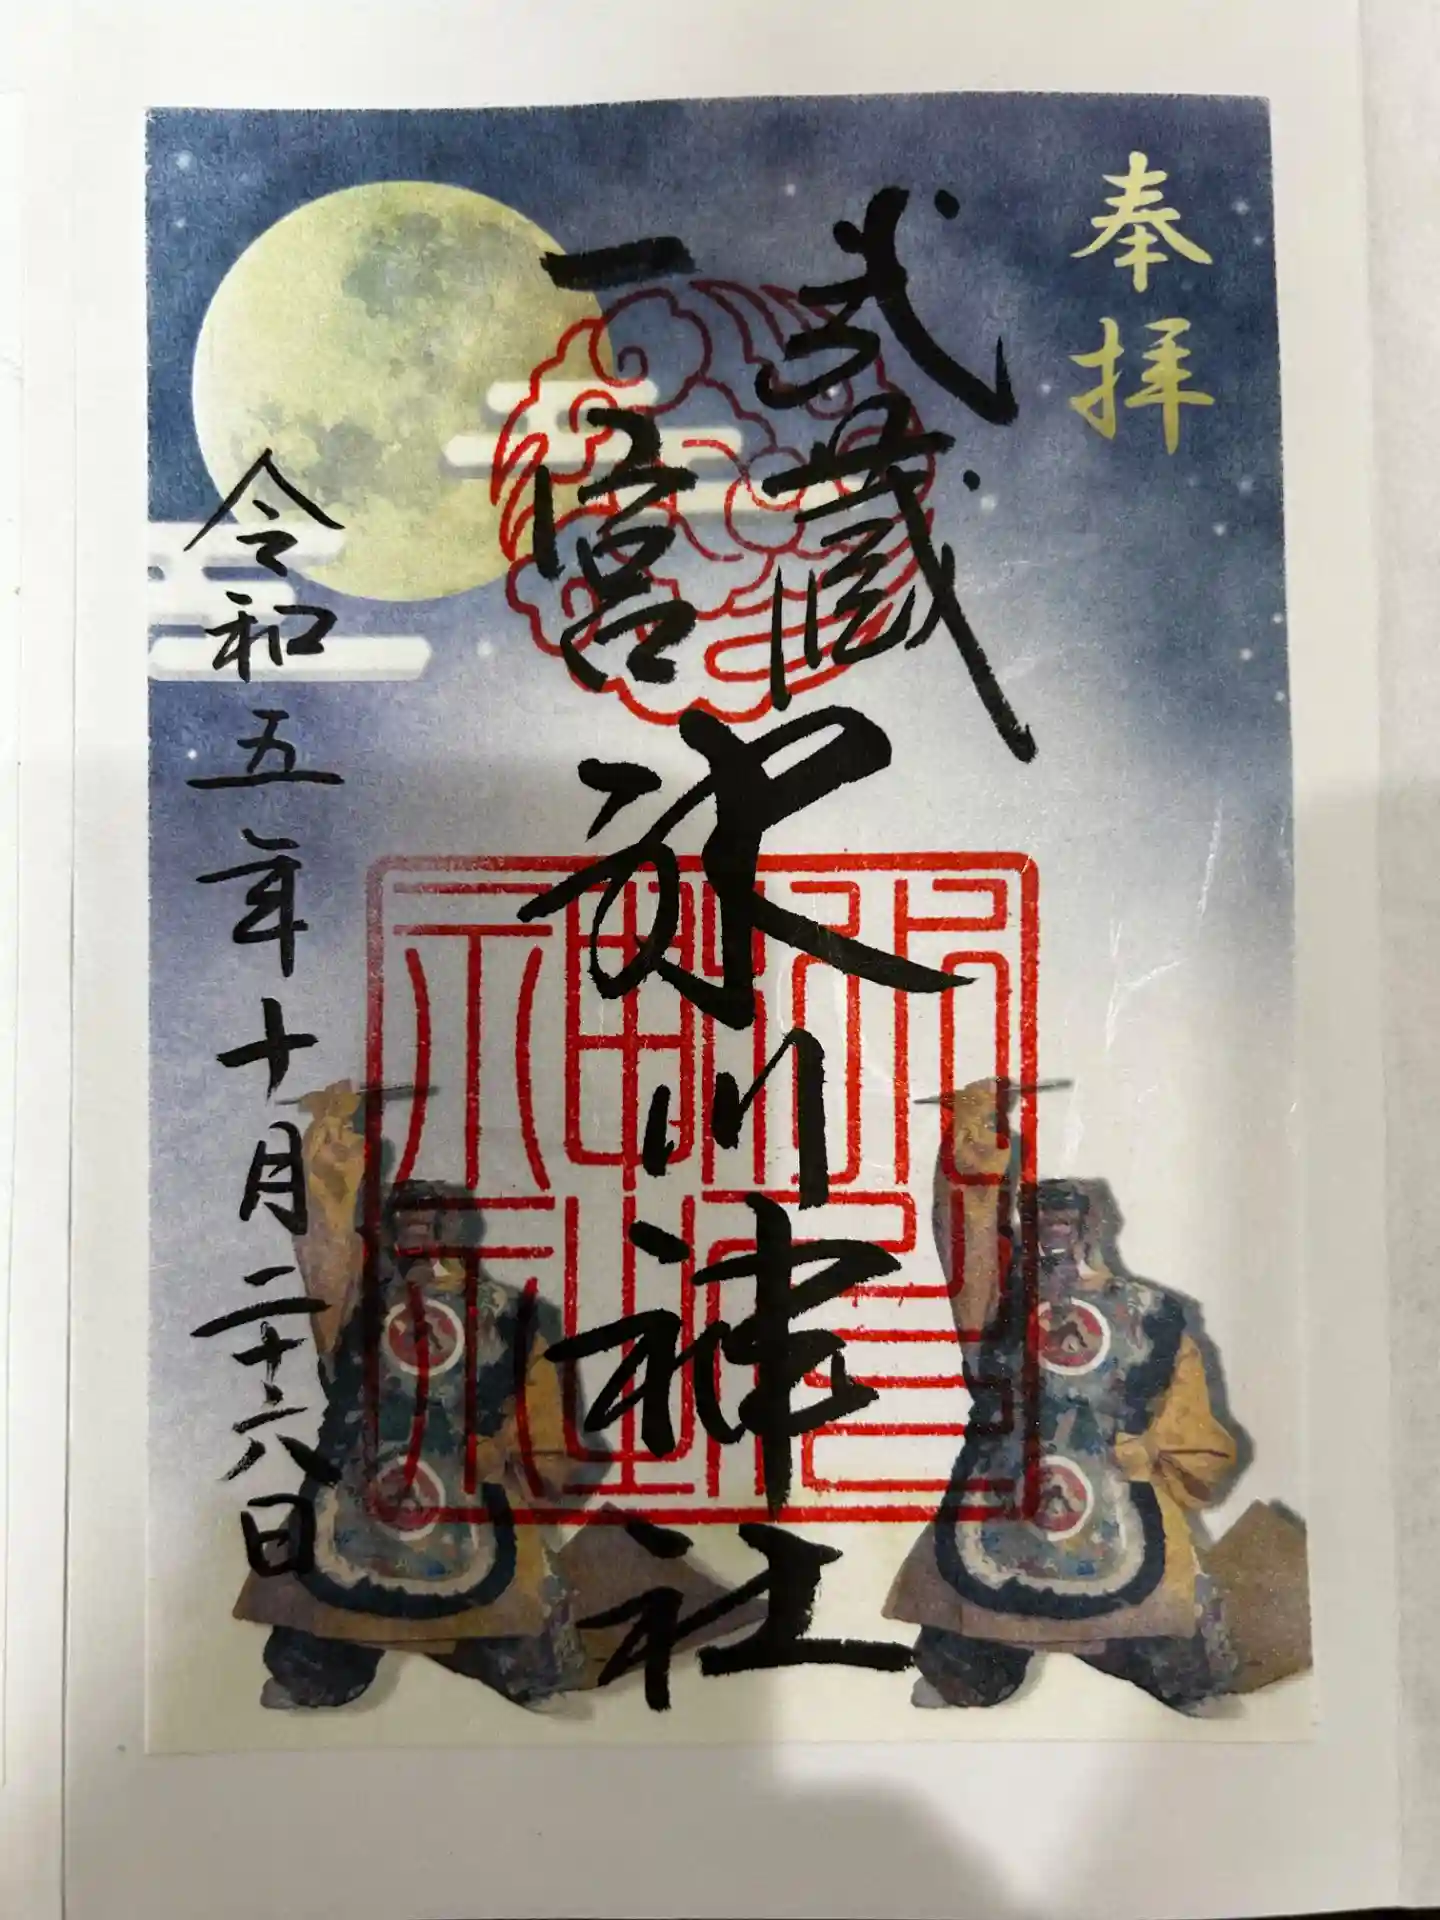 奉拝
武蔵
一宮
氷川神社
令和五年十月二十六日